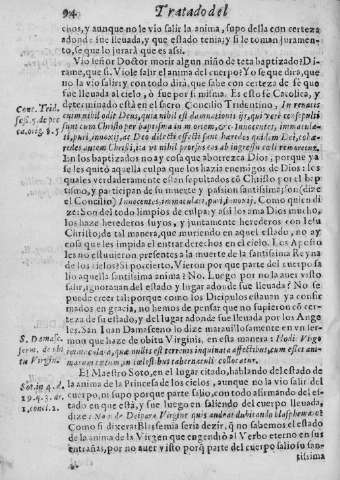 94
Tratado del
chos, y aunque no le vio salir la anima, supo della con certeza
adonde fue lleuada, y que estado tenia; y si le toman juramen-
to, se que lo jurarà que es assi.
Vio señor Doctor morir algun niño de teta baptizado? Di-
rame, que si. Viole salir el anima del cuerpo? Yo se que dirà, que
no la vio salir; y con todo dirà, que sabe con certeza de se que
fue lleuada al cielo, ò fue por si misma. Es esto fe Catolica, y
determinado està en el sacro Concilio Tridentino, In renatis
enim nihil odit Deus, quia nihil est damnationis ijs, qui verè consepulti
sunt cum Christo per baptisma in mortem, &c. Innocentes, immacula-
ti, puri, innoxij, ac Deo dilecti effecti sunt haredes quidem Dei, coha-
redes autem Christi, ita vt nihil prorsus eos ab ingressu cœli remoretur.
Conc. Trid.
sess. 5. de pec
ca. orig. §. 5
En los baptizados no ay cosa que aborrezca Dios, porque ya
se les quitò aquella culpa que los hazia enemigos de Dios: los
quales verdaderamente estan sepultados cõ Christo por el bap-
tismo, y participan de su muerte y passion santissima; son (dize
el Concilio) Innocentes, immaculati, puri, innoxij. Como quien di-
ze: Son del todo limpios de culpa; y assi los ama Dios mucho,
los haze herederos suyos, y juntamente herederos con Iesu
Christo; de tal manera, que muriendo en aquel estado, no ay
cosa que les impida el entrar derechos en el cielo. Los Aposto
les no estuuieron presentes a la muerte de la santissima Reyna
de los cielos? Si por cierto. Vieron por que parte del cuerpo sa
lio aquella santissima anima? No. Luego por no la auer visto
salir, ignorauan del estado y lugar adonde fue lleuada? No se
puede creer tal; porque como los Dicipulos estauan ya confir
mados en gracia, no hemos de pensar que no supieron cõ cer-
teza de su estado, y del lugar adonde fue lleuada por los Ange
les. San Iuan Damasceno lo dize marauillosamente en vn ser-
mon que haze de obitu Virginis, en esta manera: Hodi Virgo
S. Damasc.
serm. de obi
tu Virginis.
El Maestro Soto, en el lugar citado, hablando del estado de
la anima de la Princesa de los cielos, aunque no la vio salir del
cuerpo, ni supo porque parte salio, con todo afirmando del es-
tado en que està, y fue luego en saliendo del cuerpo lleuada,
dize: Nam de Deipara Virgine quis audeat dubitando blasphemare?
Como si dixera: Blasfemia seria dezir, q̃ no sabemos el estado
de la anima de la Virgen que engendrò al Verbo eterno en sus
entrañas, por no auer visto porq̃ parte del cuerpo salio su san-
tissima